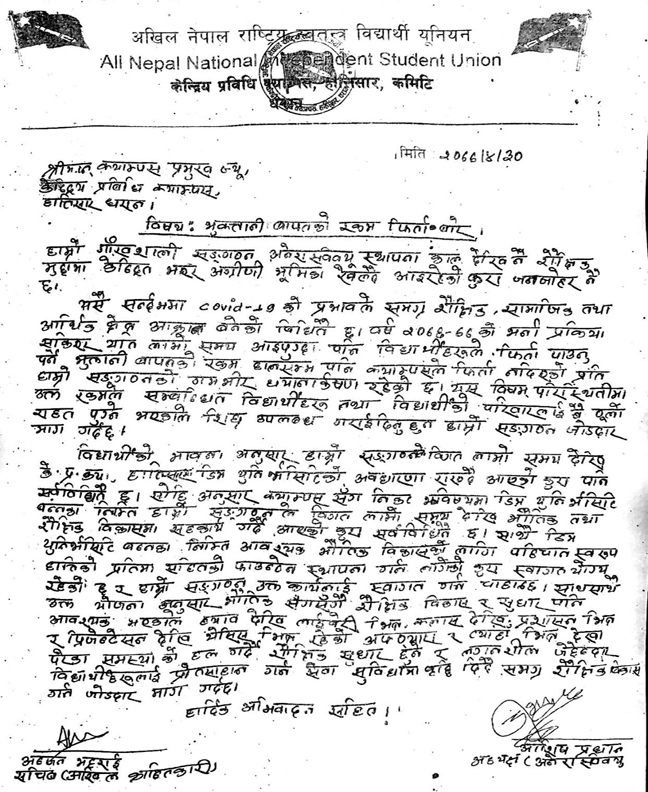 अखिल नेपाल राष्ट्रिय स्वतन्त्र विद्यार्थी यूनियन
All Nepal National Independent Student Union
केन्द्रिय प्रविधि क्याम्पस, हात्तिसार, कमिटि
धरान
मिति २०७७/४/३०
श्रीमान् क्याम्पस प्रमुख ज्यू,
केन्द्रिय प्रविधि क्याम्पस,
हात्तिसार धरान।
विषय: भुक्तानी बापतको रकम फिर्ता बारे।
हाम्रो गौरवशाली सङ्गठन अनेरास्ववियु स्थापना काल देखि नै शैक्षिक
मुद्दामा केन्द्रित भइर अग्रणी भूमिका खेल्दै आइरहेको कुरा जनजाहेर नै
छ।
यसै सन्दर्भमा covid-19 को प्रभावले समग्र शैक्षिक, सामाजिक तथा
आर्थिक क्षेत्र आक्रान्त बनेको विधितै छ। वर्ष को भर्ना प्रकिया
यति लामो समय आइपुग्दा पनि विद्यार्थीहरुले फिर्ता पाउनु
पर्ने भुक्तानी बापतको रकम हालसम्म पनि क्याम्पसले फिर्ता नदिएको प्रति
हाम्रो सङ्गठनको गम्भीर ध्यानाकर्षण रहेको छ। यस विषम परिस्थितीमा
उक्त रकमले सम्बन्धित विद्यार्थीहरु तथा विद्यार्थीको परिवारलाई नै ठूलो
राहत पुग्ने भएकोले शिघ्र उपलब्ध गराईदिनु हुन हाम्रो सङ्गठन जोडदार
माग गर्दछ।
विद्यार्थीको भावना अनुसार हाम्रो सङ्गठनले विगत लामो समय देखि
के.प्र.क्या. हात्तिसारमा डिम्ड युनिर्भसिटिको अवधारणा राख्दै आएको कुरा पनि
सर्वविधितै छ। सोहि अनुसार क्याम्पस संग निकट भविष्यमा डिम्ड युनिर्भसिटि
बनाउन निम्ति हाम्रो सङ्गठनले विगत लामो समय देखि भौतिक तथा
शैक्षिक विकासमा सहकार्य गर्दै आएको कुरा सर्वविधितै छ। साथै डिम्ड
युनिर्भसिटि बनाउन निम्ति आवश्यक भौतिक विकासको लागि पहिचान स्वरुप
हात्तिको प्रतिमा सहितको फाउन्टेन स्थापना गर्न लागेको कुरा स्वागत योग्य
रहेको छ र हाम्रो सङ्गठन उक्त कार्यलाई स्वागत गर्न चाहान्छ। साथसाथै
उक्त योजना अनुसार भौतिक संगसंगै शैक्षिक विकास र सुधार पनि
आवश्यक भएकोले ल्याव देखि लाईब्रेरी भित्र, क्लास देखि प्रशासन भित्र
र प्रिजेन्टेसन देखि थेसिस भित्र रहेको अफ्ठ्यारा र भित्र देखा
परेका समस्या को हल गर्दै शैक्षिक सुधार हुने र लगानशील जेहेन्दार
विद्यार्थीहरुलाई प्रोत्साहान गर्न सेवा सुविधामा वृद्धि दिँदै समग्र शैक्षिक विकास
गर्न जोडदार माग गर्दछ।
हार्दिक अभिवादन सहित।
भट्टराई
सचिव (अखिल क्रान्तिकारी)
आशिष प्रधान
अध्यक्ष (अनेरास्ववियु)